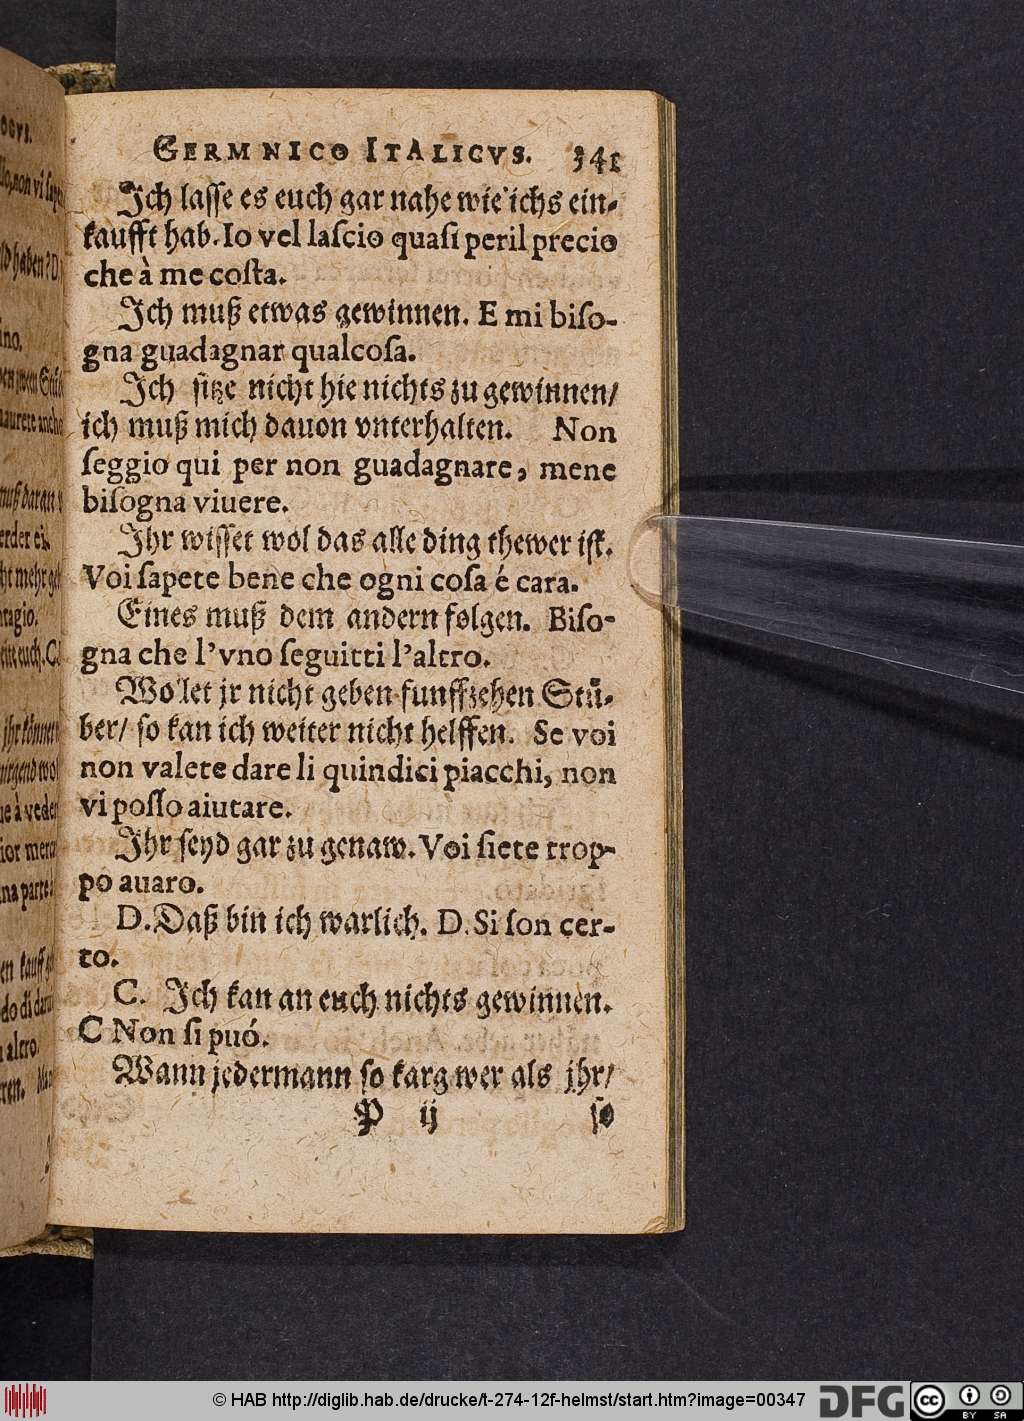 GERMNICO ITALICVS. 341
Ich lasse es euch gar nahe wie ichs ein-
kaufft hab. Io vel lascio quasi peril precio
che à me costa.
Ich muß etwas gewinnen. E mi biso-
gna guadagnar qualcosa.
Ich sitze nicht hie nichts zu gewinnen/
ich muß mich dauon vnterhalten. Non
seggio qui per non guadagnare, mene
bisogna viuere.
Ihr wisset wol das alle ding thewer ist.
Voi sapete bene che ogni cosa é cara.
Eines muß dem andern folgen. Biso-
gna che l'vno seguitti l'altro.
Wo let jr nicht geben funffzehen Stü-
ber/ so kan ich weiter nicht helffen. Se voi
non valete dare li quindici piacchi, non
vi posso aiutare.
Ihr seyd gar zu genaw. Voi siete trop-
po auaro.
D. Daß bin ich warlich. D. Si son cer-
to.
C. Ich kan an euch nichts gewinnen.
C Non si puó.
Wann jedermann so karg wer als jhr/
P ij so
© HAB http://diglib.hab.de/drucke/t-274-12f-helmst/start.htm?image=00347
DFG
cc BY SA